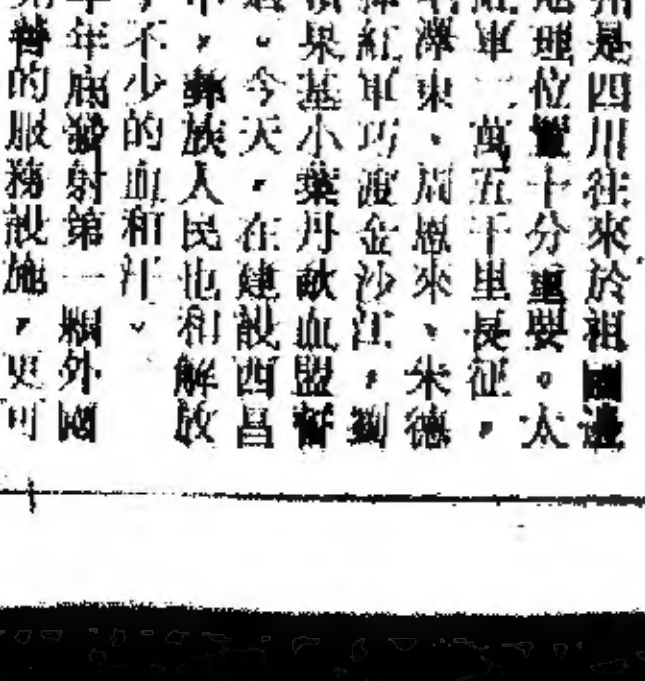 州是四川往來於祖國邊
地理位置十分重要。太
紅軍二萬五千里長征，
毛澤東、周恩來、朱德
揮紅軍巧渡金沙江，劉
果基小葉丹歃血盟誓
。今天，在建設西昌
中，彝族人民也和解放
了不少的血和汗。
年年底發射第一顆外國
營的服務設施，更可